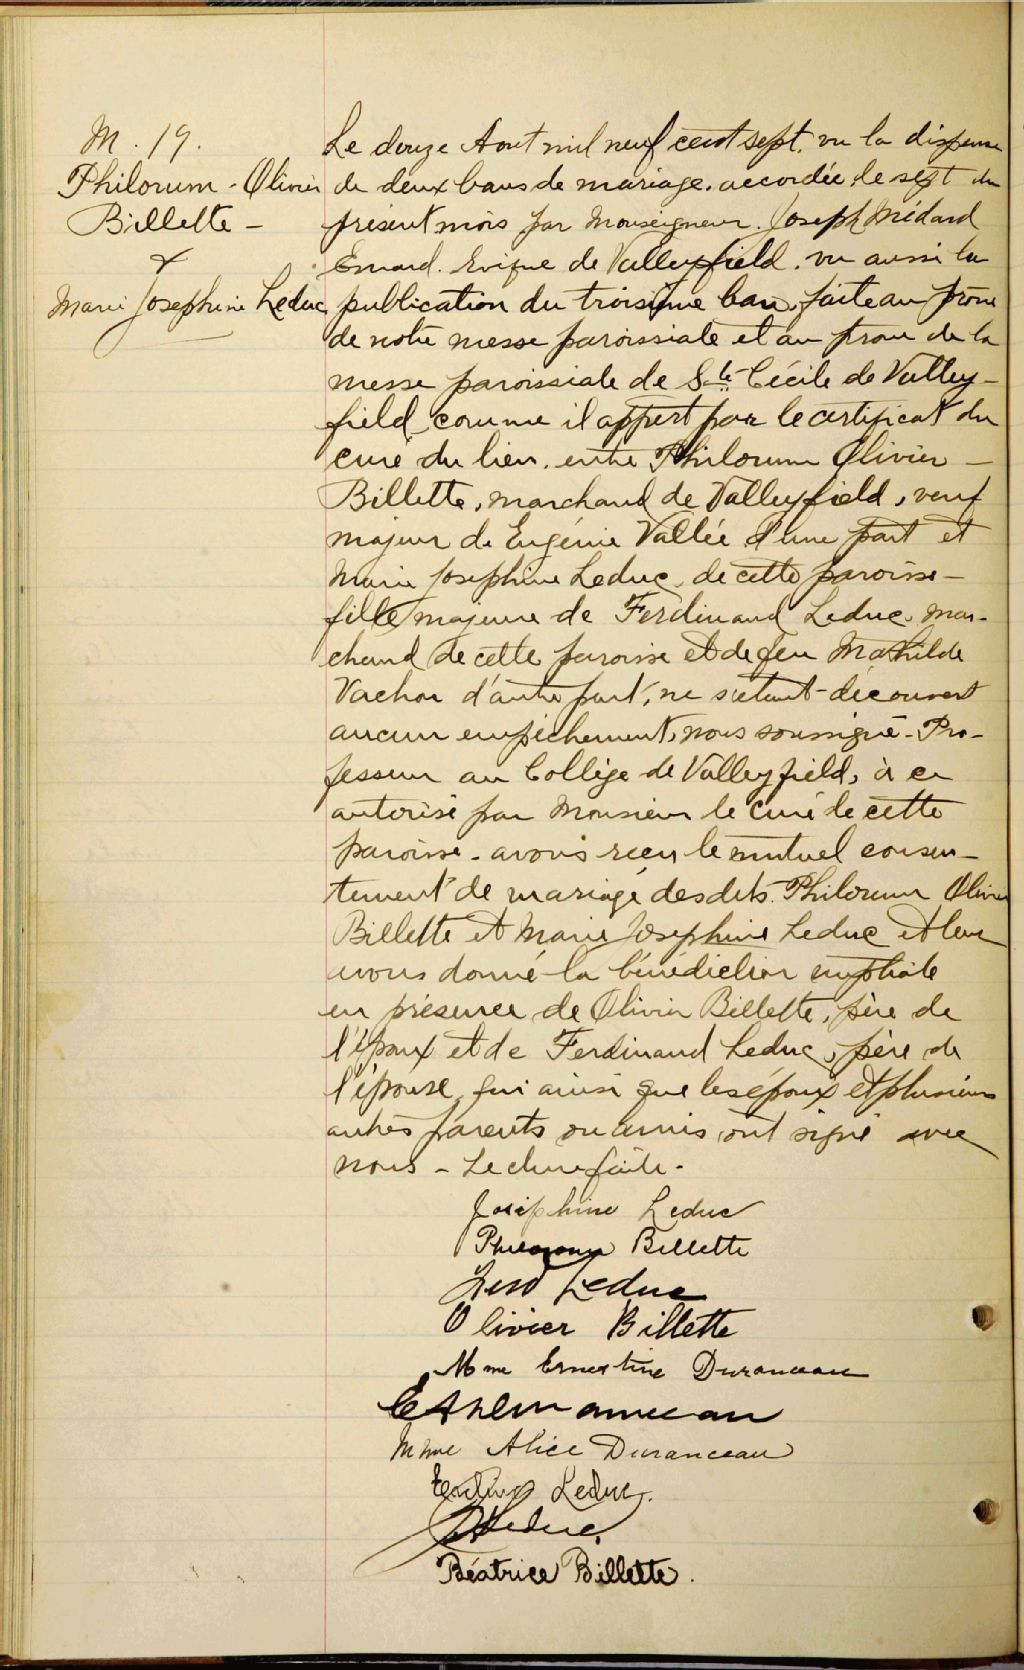 M. 19.
Philorum - Olivier
Billette -
&
Marie Josephine Leduc
Le douze Aout mil neuf cent sept, vu la dispense
de deux bans de mariage, accordée le sept du
présent mois par Monseigneur Joseph Médard
Emard. Evêque de Valleyfield. vu aussi la
publication du troisième ban, faite au prône
de notre messe paroissiale et au prone de la
messe paroissiale de Ste Cécile de Valley-
field, comme il appert par le certificat du
curé du lieu, entre Philorum Olivier -
Billette, marchand de Valleyfield, veuf
majeur de Eugénie Vallée d'une part et
Marie Josephine Leduc, de cette paroisse -
fille majeure de Ferdinand Leduc, mar-
chand de cette paroisse et de feu Mathilde
Vachon d'autre part, ne s'etant découvert
aucun empêchement, nous soussigné - Pro-
fesseur au Collège de Valleyfield, à ce
autorisé par Monsieur le curé de cette
paroisse - avons reçu le mutuel consen-
tement de mariage desdits Philorum Olivier
Billette et Marie Josephine Leduc et leur
avons donné la bénédiction nuptiale
en présence de Olivier Billette, père de
l'époux et de Ferdinand Leduc, père de
l'épouse, qui ainsi que les époux et plusieurs
autres parents ou amis, ont signé avec
nous - Lecture faite -
Josephine Leduc
Philorum Billette
Leduc
Olivier Billette
Mme Ernestine Duranceau
Mme Alice Duranceau
Leduc.
Leduc.
Béatrice Billette.